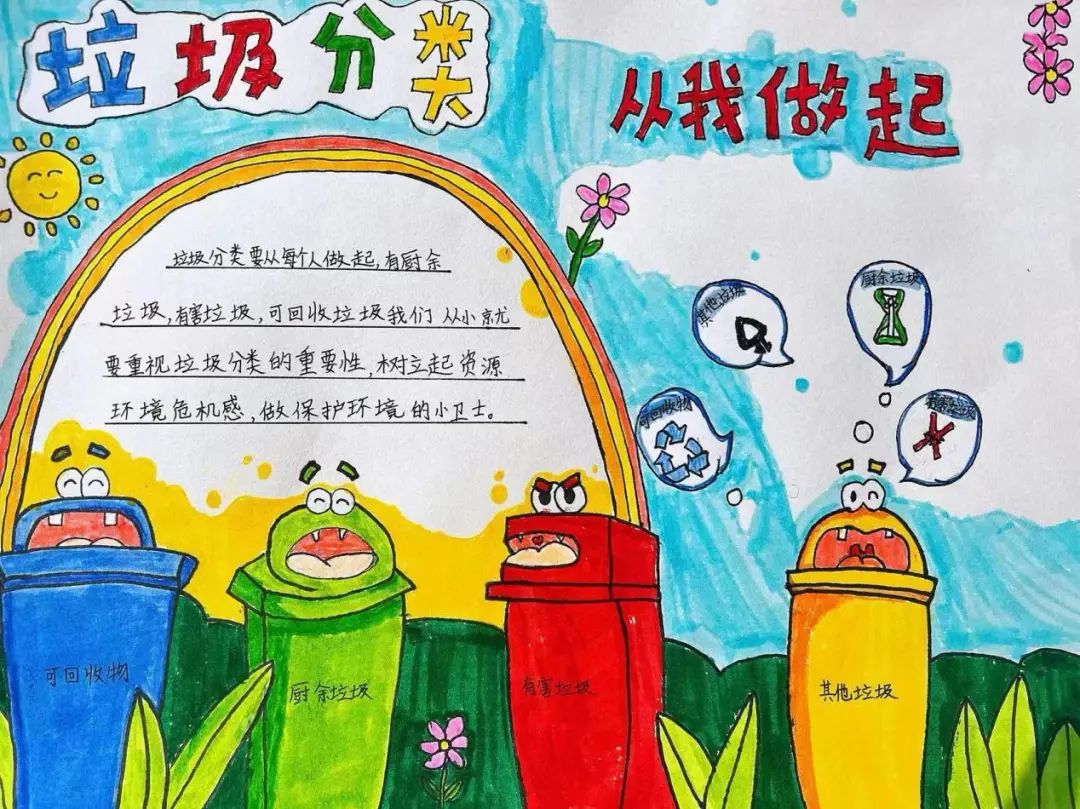 垃圾分类
从我做起
垃圾分类要从每个人做起,有厨余
垃圾,有害垃圾,可回收垃圾我们从小就
要重视垃圾分类的重要性,树立起资源
环境危机感,做保护环境的小卫士。
其他垃圾
厨余垃圾
可回收物
有害垃圾
可回收物
厨余垃圾
有害垃圾
其他垃圾